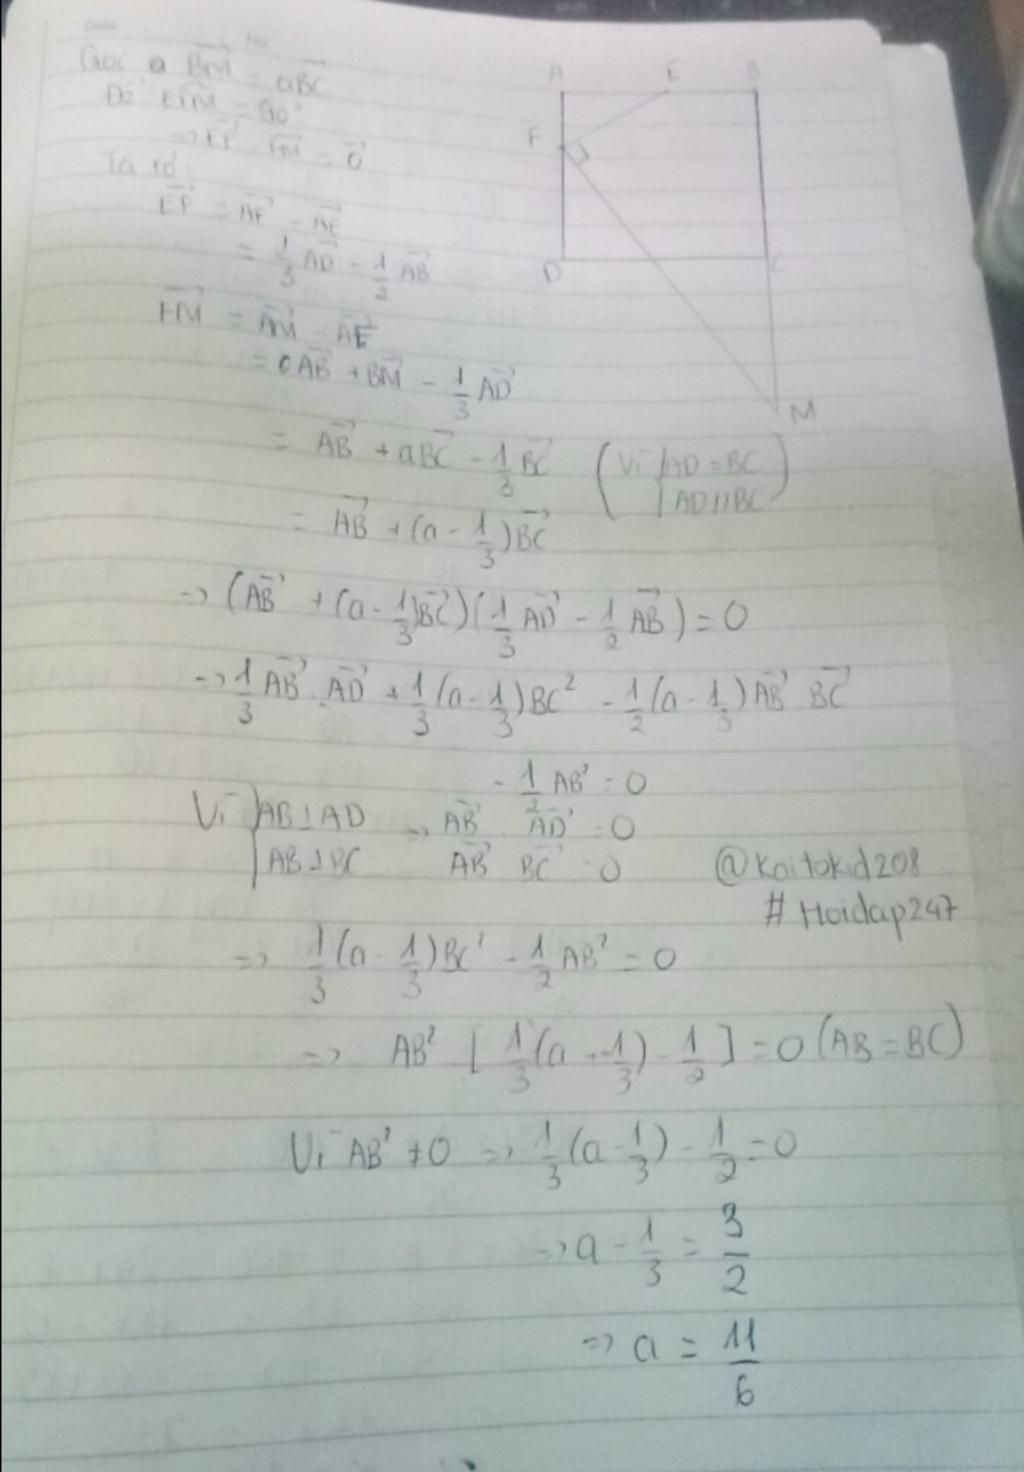 Gọi a BM→ = aBC→
Để EFM = 90°
=> EF→ . FM→ = 0→
Ta có:
EF→ = AF→ - AE→
= 1/3 AD→ - 1/2 AB→
FM→ = AM→ - AF→
= AB→ + BM→ - 1/3 AD→
= AB→ + aBC→ - 1/3 BC→ (Vì {AD = BC
AD // BC)
= AB→ + (a - 1/3)BC→
=> (AB→ + (a - 1/3)BC→)(1/3 AD→ - 1/2 AB→) = 0
=> 1/3 AB→ . AD→ + 1/3 (a - 1/3)BC² - 1/2 (a - 1/3) AB→ BC→
- 1/2 AB² = 0
Vì {AB ⊥ AD => AB→ AD→ = 0
AB ⊥ BC AB→ BC→ = 0
@Kaitokid208
# Hoidap247
=> 1/3 (a - 1/3)BC² - 1/2 AB² = 0
=> AB² [1/3 (a - 1/3) - 1/2] = 0 (AB = BC)
Vì AB² ≠ 0 => 1/3 (a - 1/3) - 1/2 = 0
=> a - 1/3 = 3/2
=> a = 11/6
A E B
F
D C
M